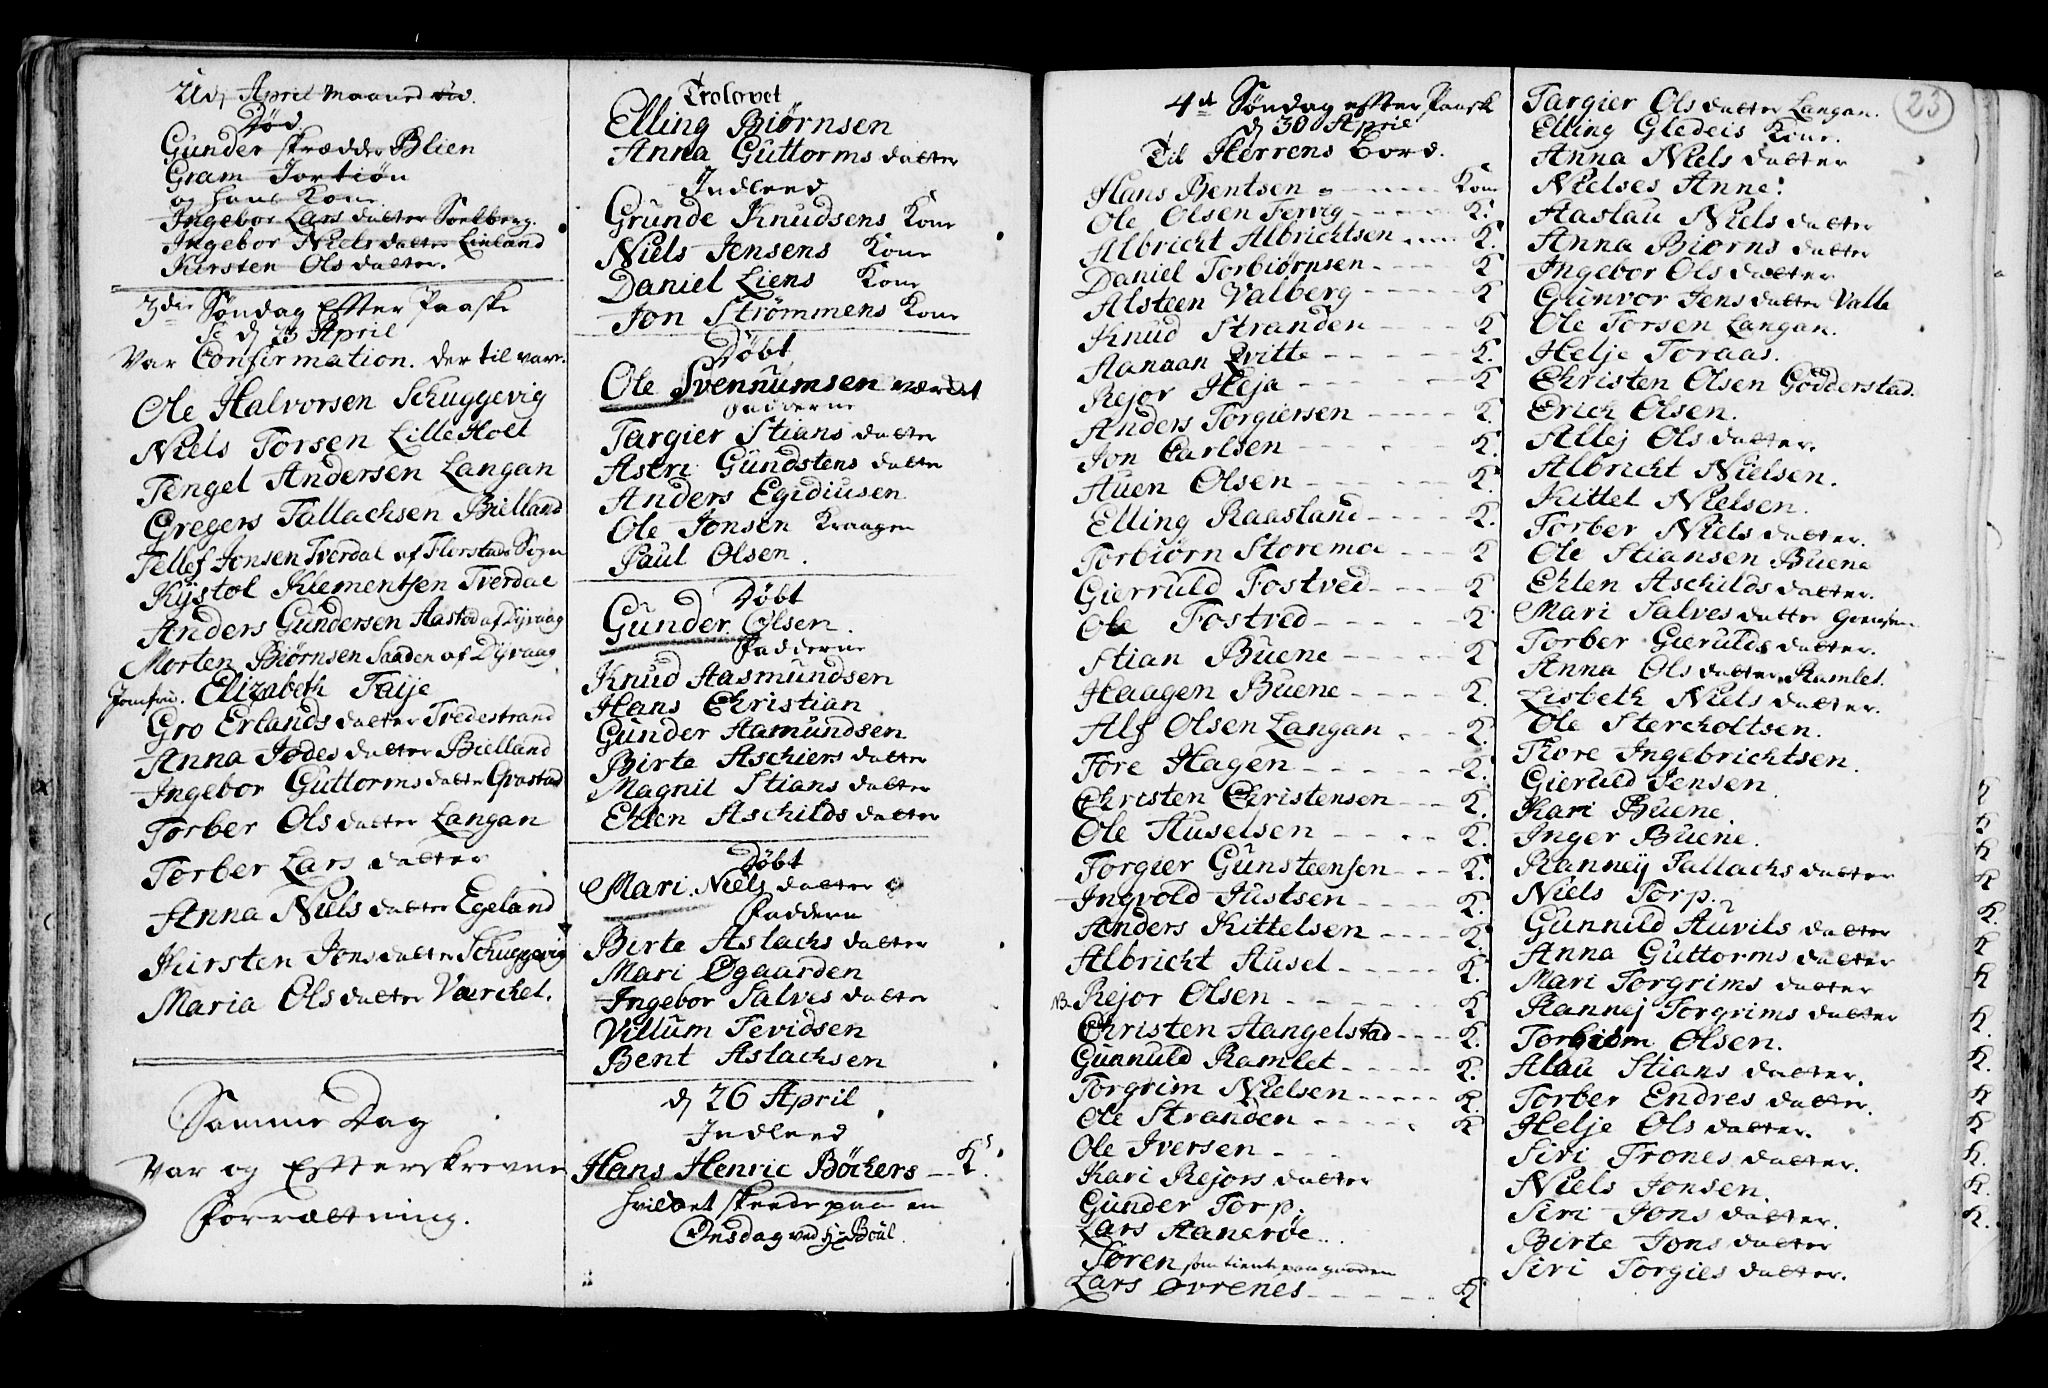 Udj April Maaned
Død
Gunder skrædder Blien
Gram Tortiøn
og hans Kone
Ingebor Lars datter Soelberg.
Ingebor Niels datter Linland
Kirsten Ols datter.
3die Søndag Efter Paaske
d 23 April
Var Confirmation. der til vare
Ole Halvorsen Schuggevig
Niels Torsen Lille Holt
Tengel Andersen Langan
Gregers Tallachsen Bielland
Tellef Jonsen Tverdal af Flerstads Sogn
Kystol Klementsen Tverdal
Anders Gundersen Aastad af Dyvaag
Morten Biørnsen Sanden af Dyvaag
Jomfru. Elizabeth Taije
Gro Erlands datter Tvedestrand
Anna Jodes datter Bielland
Ingebor Guttorms datter Qvastad
Torber Ols datter Langan
Torber Lars datter
Anna Niels datter Egeland
Kirsten Jons datter Schuggevig
Maria Ols datter Værchet.
Samme Dag
Var og Efterskrevne
Forrættning.
Trolovet
Elling Biørnsen
Anna Guttorms datter
Indleed
Grunde Knudsens Kone
Niels Jensens Kone
Daniel Liens Kone
Jon Strømmens Kone
Døbt
Ole Svennumsen Værcket
Fadderne
Targier Stians datter
Astri Gundstens datter
Anders Egidiusen
Ole Jonsen Kraagen
Paul Olsen.
Døbt
Gunder Olsen.
Fadderne
Knud Aasmundsen
Hans Christian
Gunder Aamundsen
Birte Aschiers datter
Magnil Stians datter
Ehlen Aschilds datter
Døbt
Mari. Niels datter
Faddere
Birte Aslachs datter
Mari Øgaarden
Ingebor Salves datter
Villum Tevidsen
Bent Aslachsen
d 26 April
Indleed
Hans Henric Böckers K.
hvilket skeede paa en
Onsdag ved Hr Boul.
23
4de Søndag efter Paaske
d 30 April
Til Herrens Bord.
Hans Bentsen Kone
Ole Olsen Fervig K.
Albricht Albrichtsen K.
Daniel Torbiørnsen K
Alsteen Valberg K
Knud Stranden K
Aanaan Qvitte K.
Rejor Heja K
Anders Torgiersen K
Jon Carlsen K.
Auen Olsen K.
Elling Raasland K.
Torbiørn Storemoe K
Gierruld Fostved K
Ole Fostved K
Stian Buene K
Haagen Buene K.
Alf Olsen Langan K.
Tore Hagen K.
Christen Christensen K.
Ole Auselsen K.
Torgier Gunsteensen K.
Ingvold Justsen K.
Anders Kittelsen K.
Albricht Ausel K.
NB. Rejor Olsen K
Christen Aangelstad K.
Gunnuld Ramlet K.
Torgrim Nielsen K.
Ole Stranden K
Ole Iversen
Kari Rejors datter
Gunder Torp.
Lars Aanerøe
Søren som tiente paa gaarden
Lars Øvrenes K
Targier Ols datter Langan.
Elling Gledeis Kone.
Anna Niels datter
Nielses Anne.
Aaslau Niels datter
Anna Biørns datter
Ingebor Ols datter
Gunvor Jens datter Valle
Ole Torsen Langan.
Helje Toraas.
Christen Olsen Gödderstad.
Erich Olsen.
Allej Ols datter.
Albricht Nielsen.
Kittel Nielsen.
Torber Niels datter.
Ole Stiansen Buene
Ehlen Aschilds datter.
Mari Salves datter
Torber Gierulds datter.
Anna Ols datter Ramlet.
Lisbeth Niels datter.
Ole Stercholtsen.
Thore Ingebrichtsen.
Gieruld Jensen
Kari Buene.
Inger Buene.
Ranney Tallachs datter
Niels Torp.
Gunnild Auvils datter
Anna Guttorms datter
Mari Torgrims datter
Rannej Torgrims datter
Torbiørn Olsen.
Alau Stians datter.
Torber Endres datter.
Helje Ols datter.
Siri Trones datter.
Niels Jonsen.
Siri Jons datter.
Birte Jons datter
Siri Torgies datter.